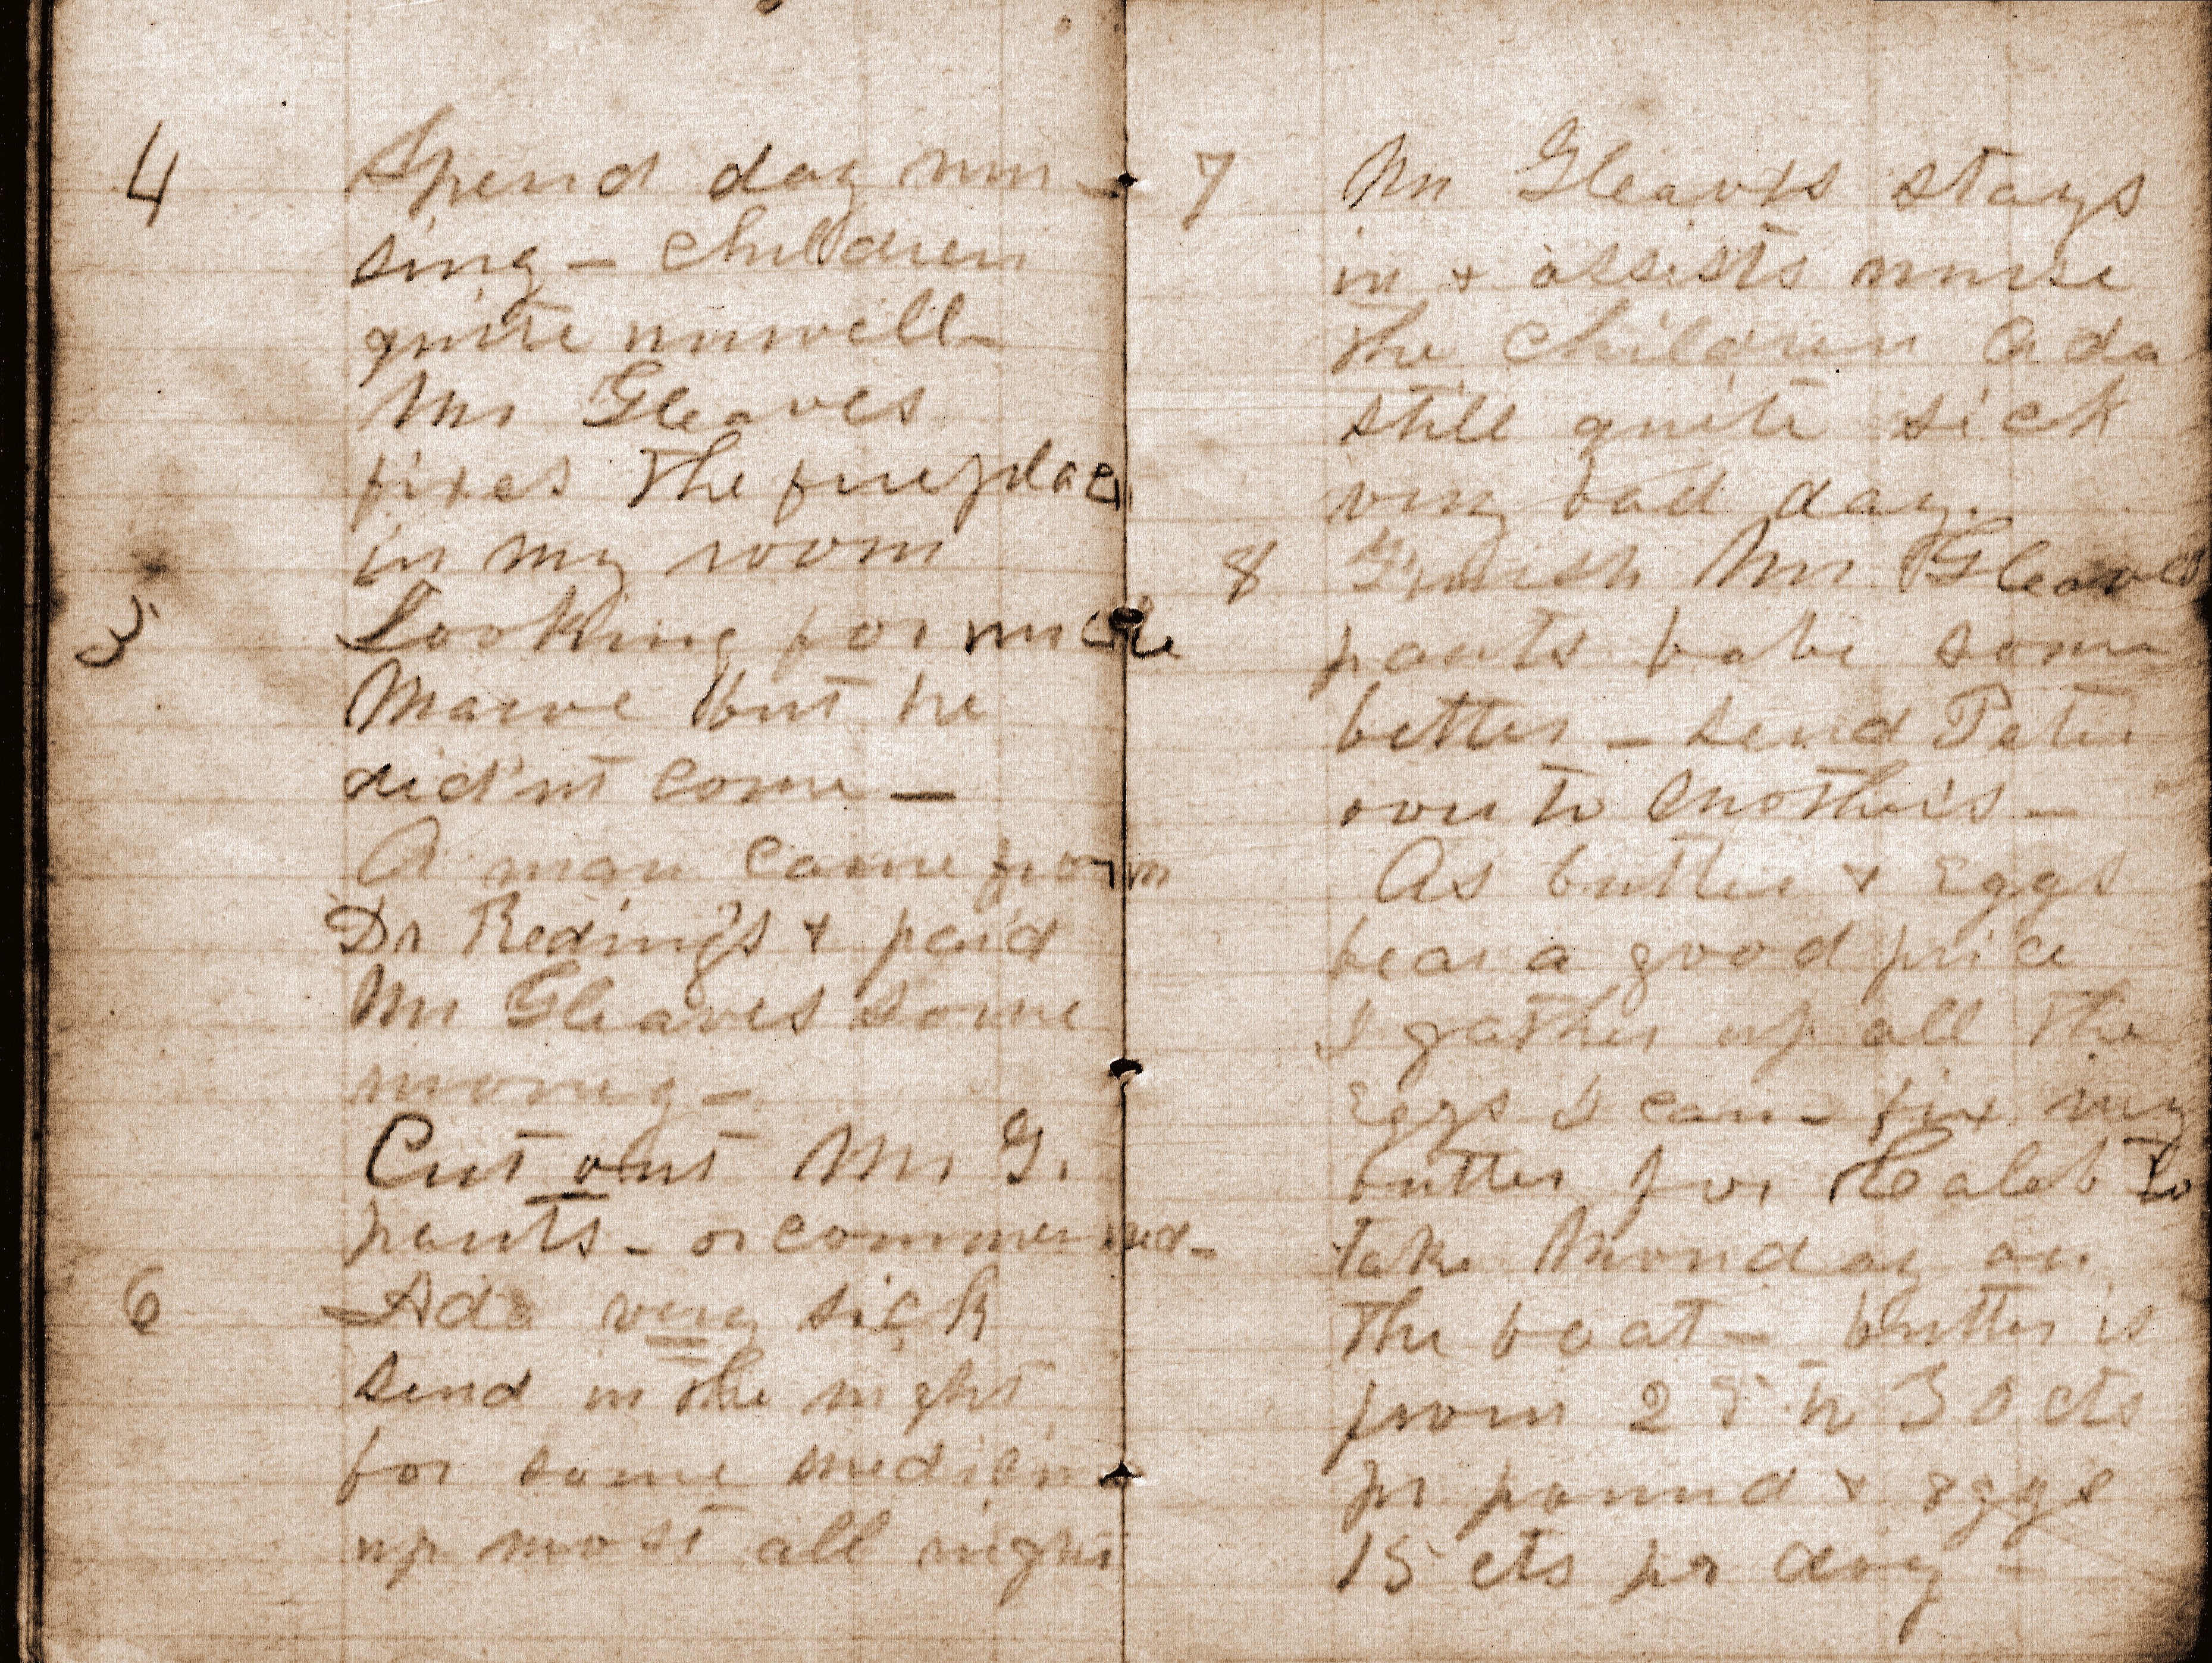 4 Spend day nur-
sing - children
quite unwell -
Mr Gleaves
fixes the fireplace
in my room
5 Looking for uncle
but he
did'nt come -
A man came from
Dr Reding's & paid
Mr Gleaves some
money -
Cut out Mr G.
pants - or commenced -
6 Ada very sick
send in the night
for some medicine
up most all night
7 Mr Gleaves stays
in & assists nurse
the children Ada
still quite sick
very bad day.
8 Finish Mr Gleaves
pants babe some
better - send Peter
over to Mother's -
As butter & Eggs
bear a good price
I gather up all the
Eggs I can - fix my
butter for Caleb to
take Monday on
the boat - butter is
from 25 to 30 cts
pr pound & eggs
15 cts pr doz -